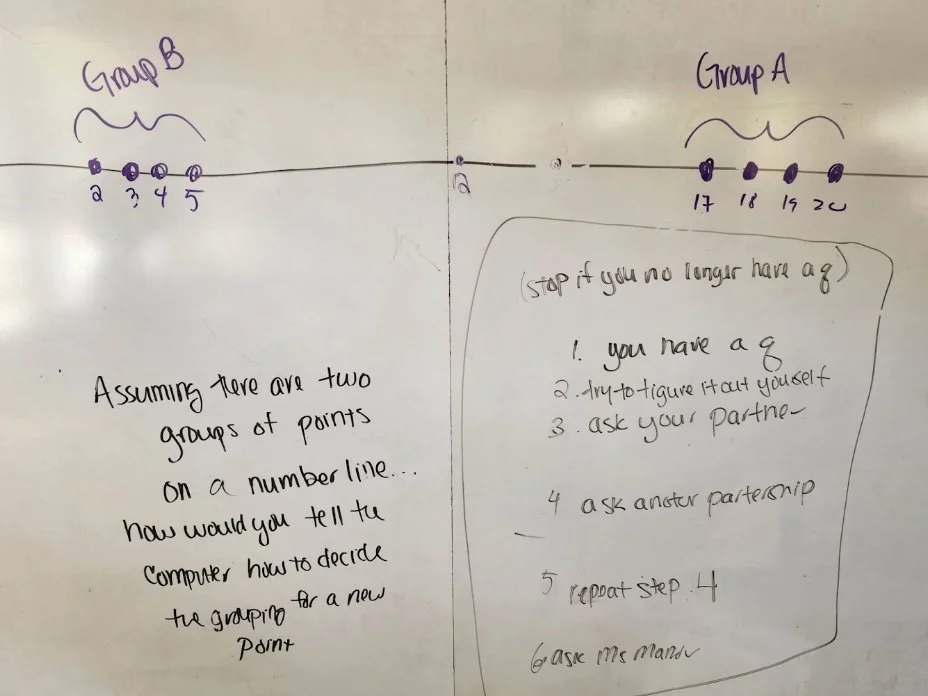 Group B
Group A
2 3 4 5
12
17 18 19 20
Assuming there are two
groups of points
on a number line...
how would you tell the
computer how to decide
the grouping for a new
point
(stop if you no longer have a q)
1. you have a q
2. try to figure it out yourself
3. ask your partner
4 ask another partership
5 repeat step 4
6 ask Ms